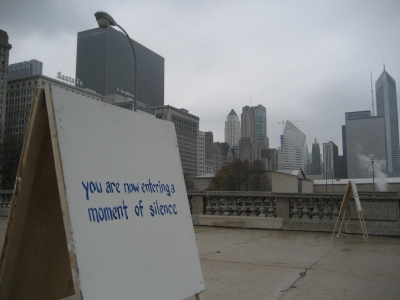 Santa Fe
you are now entering a
moment of silence